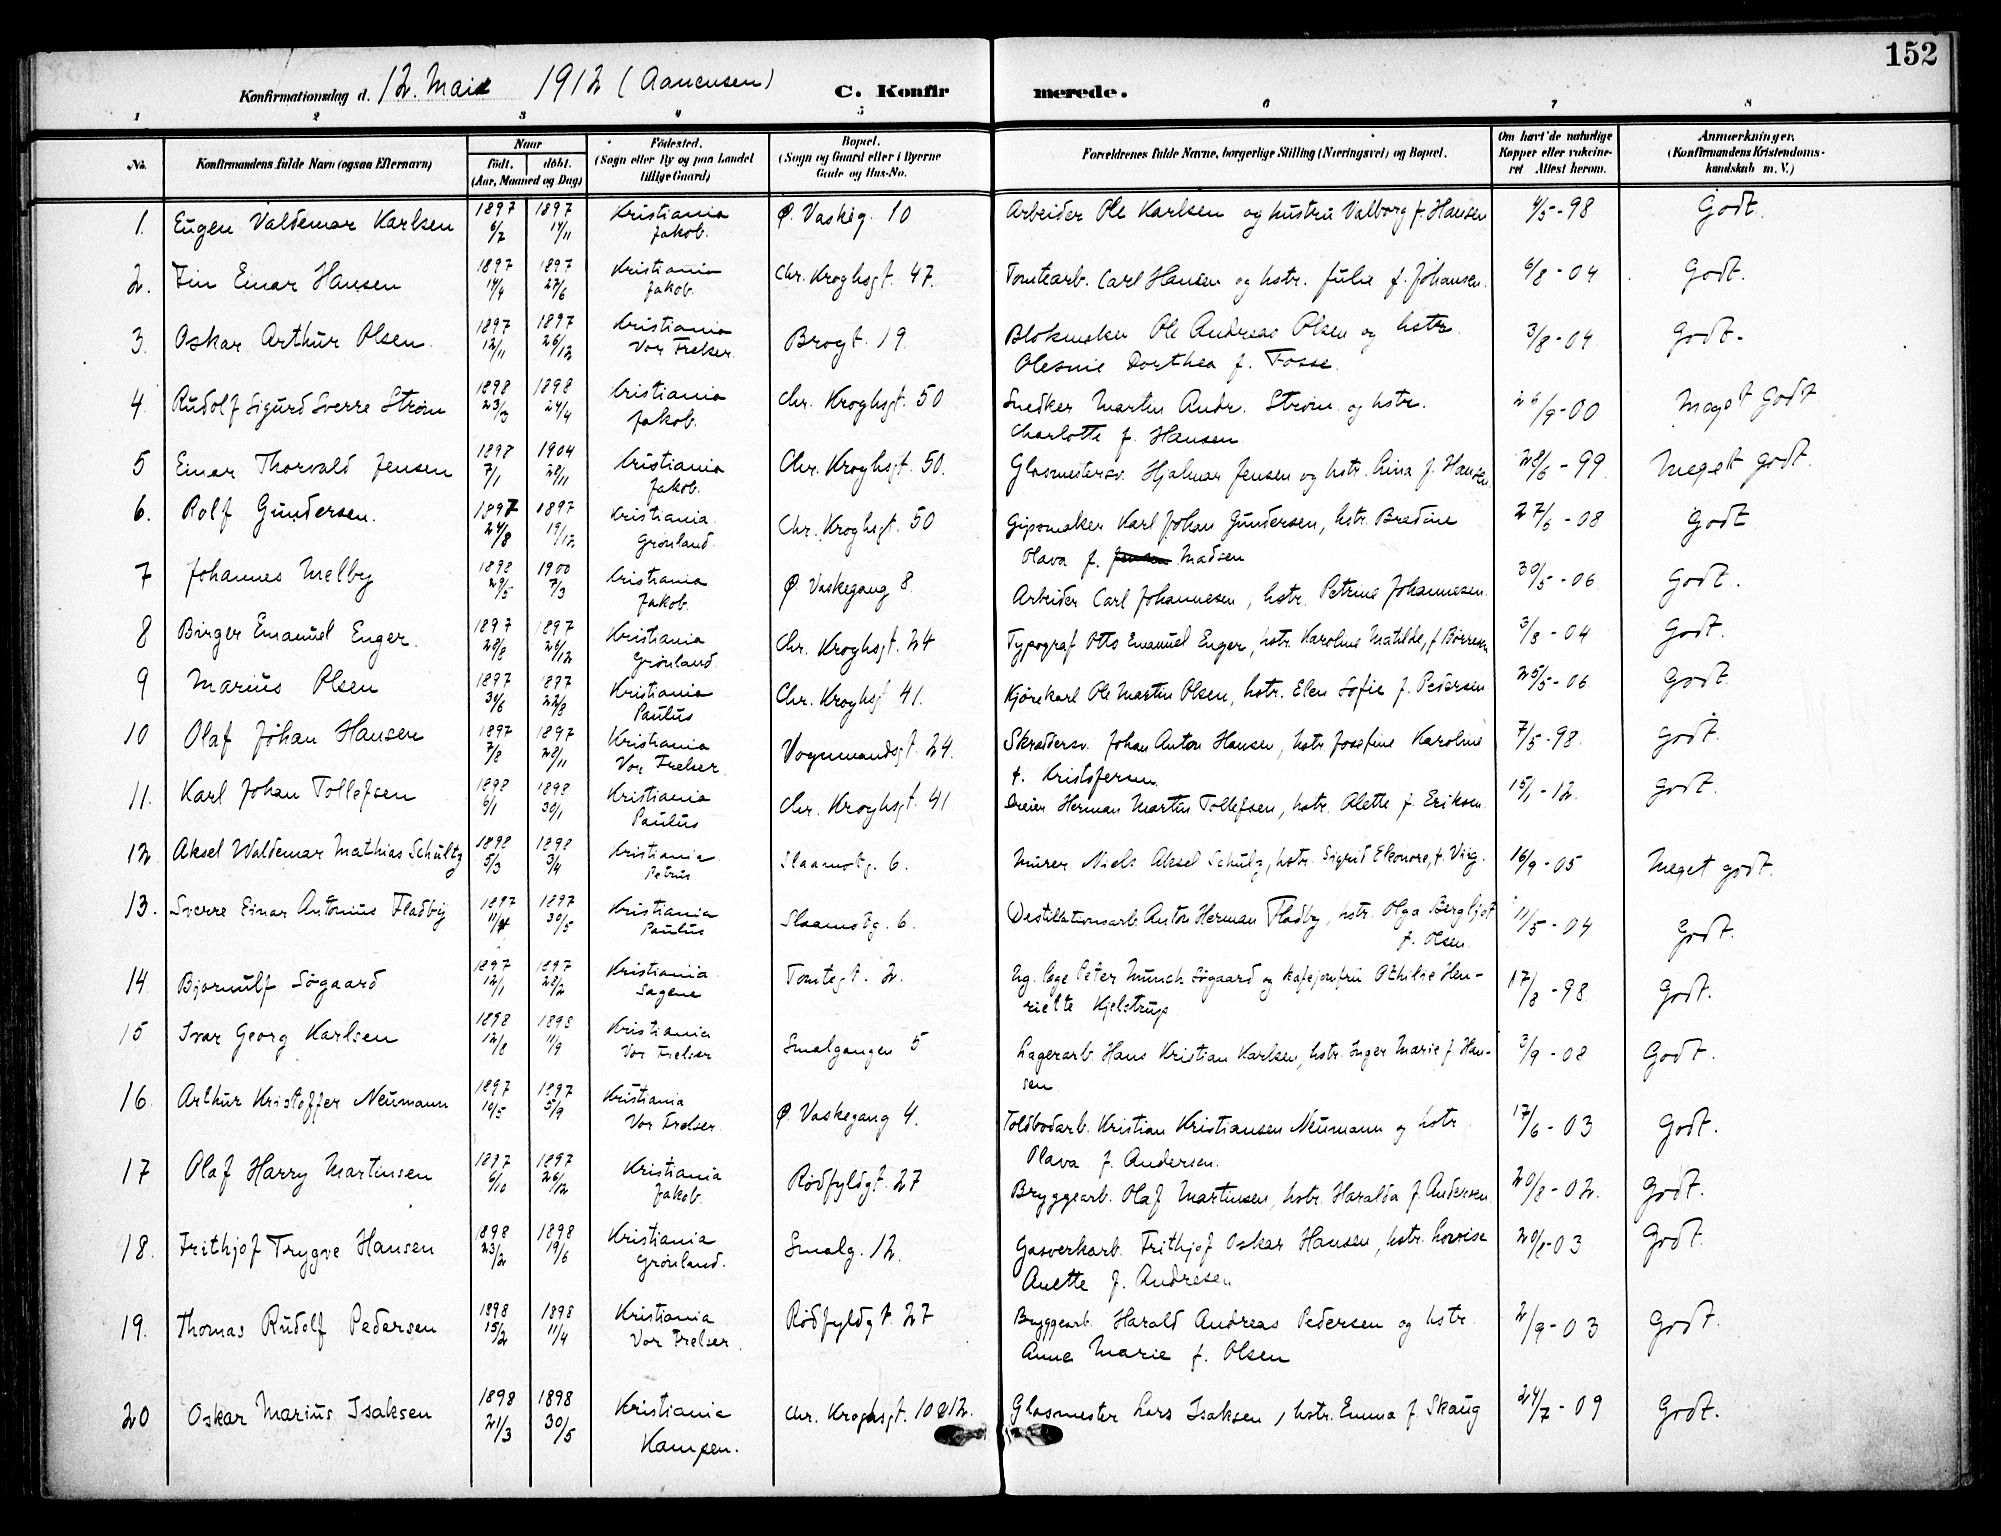 152
Konfirmationsdag d. 12. Mai 1912 (Aanensen) C. Konfirmerede.
1 2 3 4 5 6 7 8
No. Konfirmandens fulde Navn (ogsaa Efternavn) Naar født. døbt. (Aar, Maaned og Dag) Fødested. (Sogn eller By og paa Landet tillige Gaard) Bopæl. (Sogn og Gaard eller i Byerne Gade og Hus-No. Forældrenes fulde Navne, borgerlige Stilling (Næringsvei) og Bopæl. Om havt de naturlige Kopper eller vakcineret. Attest herom. Anmærkninger. (Konfirmandens Kristendomskundskab m. V.)
1. Eugen Valdemar Karlsen 1897 6/7 1897 14/11 Kristiania Jakob. Ø. Vaskeg. 10 Arbeider Ole Karlsen og hustru Valborg f. Hansen 4/5-98 Godt.
2. Finn Einar Hansen 1897 14/4 1897 27/6 Kristiania Jakob. Chr. Kroghsgt. 47. Tomtearb. Carl Hansen og hstr. Julie f. Johansen. 6/8-04 Godt.
3. Oskar Arthur Olsen. 1897 12/11 1897 26/12 Kristiania Vor Frelser Brogt. 19. Blokmaker Ole Andreas Olsen og hstr.
Olesine Dorthea f. Fosse. 3/8-04 Godt.
4. Rudolf Sigurd Sverre Strøm 1898 23/3 1898 24/4 Kristiania Jakob. Chr. Kroghsgt. 50 Snedker Martin Andr. Strøm og hstr.
Charlotte f. Hansen. 26/9-00 Meget Godt
5 Einar Thorvald Jensen 1898 7/1 1904 28/11 Kristiania Jakob. Chr. Kroghsgt. 50. Glasmestersv. Hjalmar Jensen og hstr. Lina f. Hansen. 28/6-99 Meget godt.
6. Rolf Gundersen. 1897 24/8 1897 19/12 Kristiania. Grønland. Chr. Kroghsgt. 50 Gipsmaker Karl Johan Gundersen, hstr. Bredine
Olava f. Madsen 27/6-08 Godt
7 Johannes Melby 1898 29/5 1900 7/3 Kristiania Jakob. Ø. Vaskegang 8. Arbeider Carl Johannesen, hstr. Petrine Johannesen. 30/5-06 Godt.
8 Birger Emanuel Enger. 1897 20/8 1897 26/12 Kristiania Grønland. Chr. Kroghsgt. 24 Typograf Otto Emanuel Enger, hstr. Karoline Matilde, f. Børresen 3/8-04 Godt.
9 Marius Olsen 1897 30/6 1897 22/8 Kristiania Paulus Chr. Kroghsgt 41. Kjørekarl Ole Martin Olsen, hstr. Elen Sofie f. Pedersen 25/5-06 Godt
10 Olaf Johan Hansen 1897 7/8 1897 28/11 Kristiania Vor Frelser. Vognmandsgt 24. Skræddersv. Johan Anton Hansen, hstr. Josefine Karoline
f. Kristofersen 7/5-98. Godt.
11. Karl Johan Tollefsen 1898 6/1 1898 30/1 Kristiania Paulus Chr. Kroghsgt. 41 Dreier Herman Martin Tollefsen, hstr. Alette f. Eriksen. 15/1-12. Godt.
12. Aksel Waldemar Mathias Schultz 1898 5/3 1898 3/4 Kristiania. Petrus Slaamotg. 6. Murer Niels Aksel Schulz, hstr. Sigrid Elenore, f. Viig. 16/9-05 Meget godt.
13. Sverre Einar Antonius Fladby 1897 11/4 1897 30/5 Kristiania Paulus Slaamotg. 6. Destillationsarb. Anton Herman Fladby, hstr. Olga Bergljot
f. Olsen. 11/5-04 Godt.
14. Bjørnulf Søgaard 1897 12/1 1897 28/2 Kristiania. Sagene Tomtegt. 2. Ug. Læge Peter Munch Søgaard og kafejomfru Othilie Hen-
riette Kjelstrup. 17/8-98 Godt.
15 Ivar Georg Karlsen 1898 12/8 1898 11/9 Kristiania Vor Frelser Smalgangen 5 Lagerarb. Hans Kristian Karlsen, hstr. Inger Marie f. Han-
sen 3/9-08 Godt.
16. Arthur Kristoffer Neumann 1897 10/5 1897 5/9 Kristiania Vor Frelser. Ø. Vaskegang 4. Toldbodarb. Kristian Kristiansen Neumann og hstr.
Olava f. Andersen. 17/6-03 Godt.
17 Olaf Harry Martinsen 1897 6/10 1897 26/12 Kristiania Jakob. Rødfyldgt. 27 Bryggearb. Olaf Martinsen, hstr. Haralda f. Andersen. 20/8-02. Godt.
18. Frithjof Trygve Hansen 1898 23/2 1898 19/6 Kristiania Grønland. Smalg. 12. Gasverkarb. Frithjof Oskar Hansen, hstr. Lovise
Anette f. Andresen 20/8-03 Godt.
19. Thomas Rudolf Pedersen 1898 15/2 1898 11/4 Kristiania Vor Frelser. Rødfyldgt 27 Bryggearb. Harald Andreas Pedersen og hstr.
Anna Marie f. Olsen 2/9-03 Godt.
20 Oskar Marius Isaksen 1898 21/3 1898 30/5 Kristiania Kampen. Chr. Kroghsgt. 10 Glasmester Lars Isaksen, hstr. Emma f. Skaug 24/7-09 Godt.